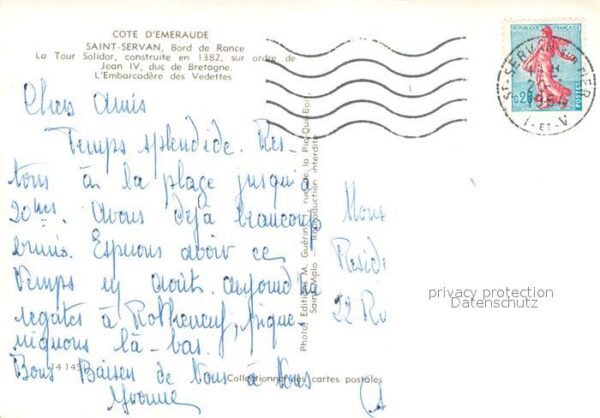 COTE D'EMERAUDE
SAINT-SERVAN, Bord de Rance
La Tour Solidor, construite en 1382, sur ordre de
Jean IV, duc de Bretagne.
L'Embarcadère des Vedettes
Chers Amis
Temps splendide. Res-
tons à la plage jusqu'à
20hes. Avons déjà beaucoup
brunis. Espérons avoir ce
temps en août. aujourd'hui
régates à Rotheneuf, pique-
niquons là-bas.
Bons Baisers de Nous à Vous
Yvonne
14 145
Collectionnez les cartes postales
Photo. Edition M. Guérin, rue de la Pie-Qui-Boit
Saint-Malo - Reproduction interdite
REPUBLIQUE FRANÇAISE
0,20
POSTES
ST-SERVAN-SUR-MER
20
I-ET-V
Mons
Resid
22 Ro
privacy protection
Datenschutz